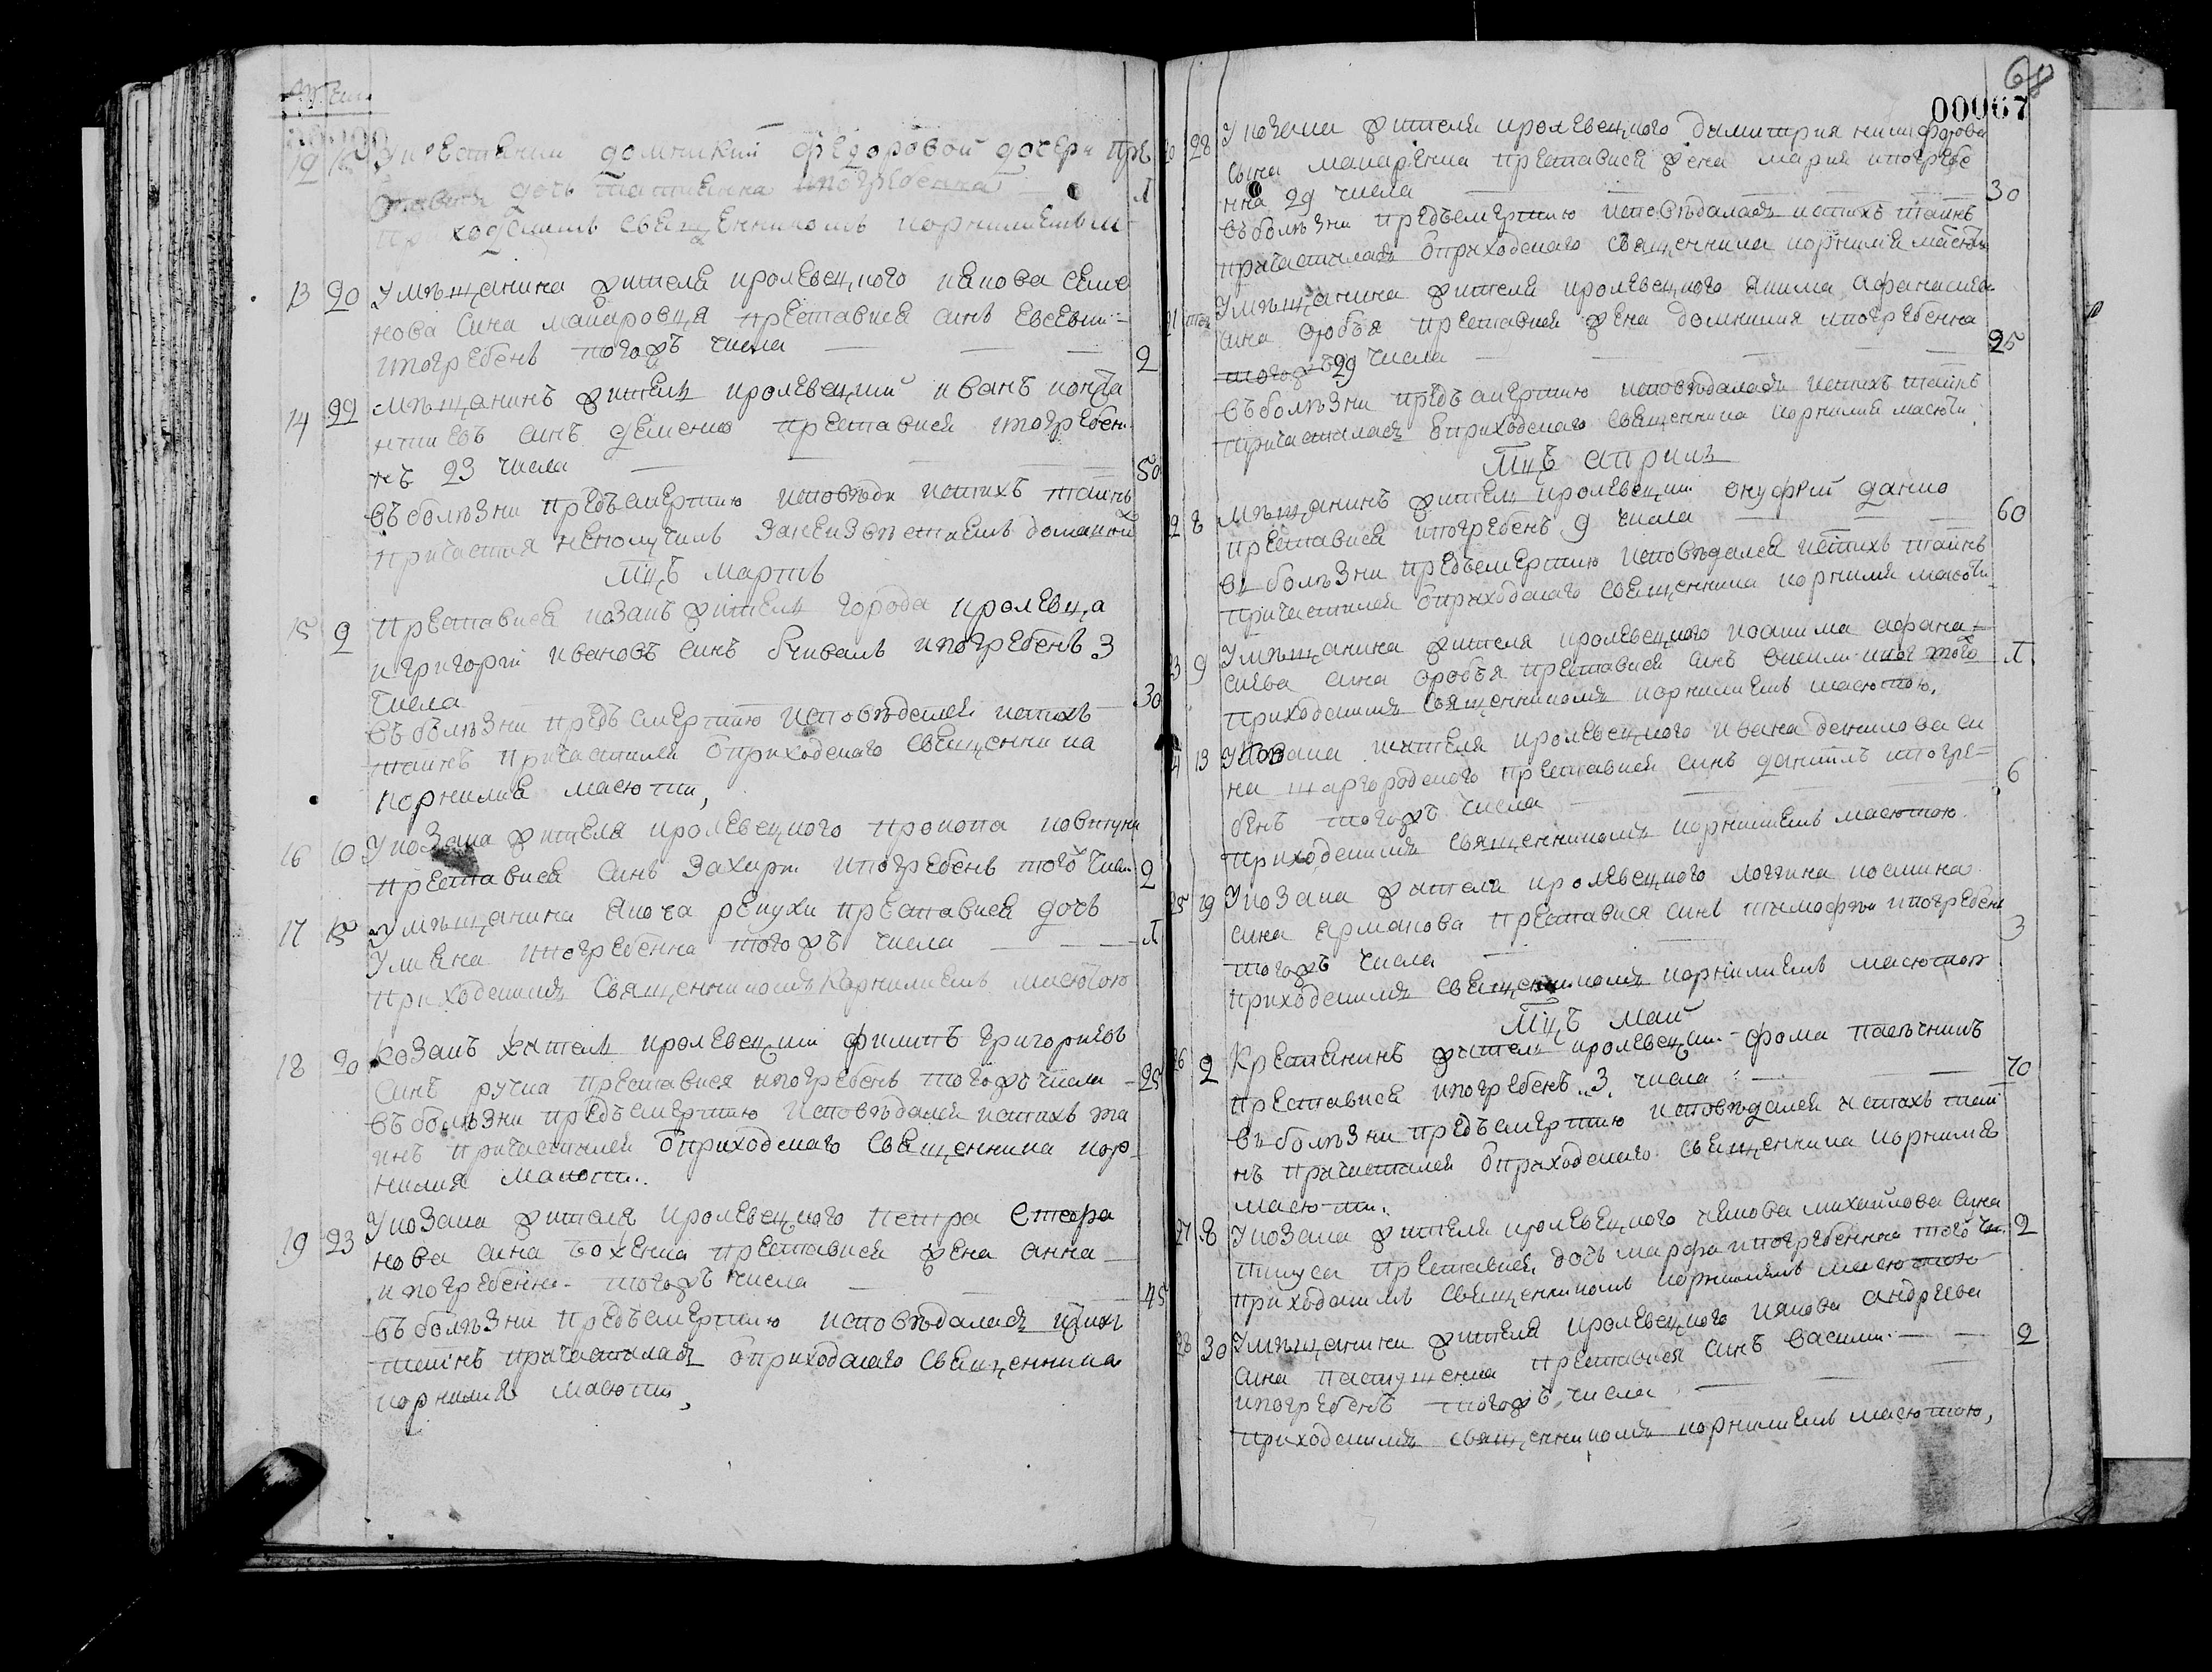 12 Укрестянки домникии федоровой дочери пре
ставися дочь татиянна ипогребенна Л
приходскимъ священникомъ корнилиемъ м
13 20 Умѣщанина жителя кролевецкого иякова семе
нова сина макаровця преставися синъ евсевии
ипогребенъ тогожъ числа 2
14 22 Мѣщанинъ житель кролевецкий иванъ кондра
тиевъ синъ деменко преставися ипогребен
нъ 23 числа 50
въболѣзни предъсмертию исповѣди истихъ таинъ
причастия неполучилъ
Мцъ мартъ
15 2 Преставися козакъ житель города кролевца
игригорий ивановъ синъ ипогребенъ 3
числа 30
въболѣзни предъсмертию исповѣдался истихъ
таинъ причастился отприходского священника
корнилия масюти,
16 10 Укозака жителя кролевецкого прокопа ковтуна
преставися синъ захари ипогребенъ того числ 2
17 Умѣщанина якова репухи преставися дочь
улияна ипогребенна тогожъ числа Л
приходскимъ священникомъ корнилиемъ масютою
18 20 Козакъ житель кролевецкий филипъ григориевъ
синъ ручка преставися ипогребенъ тогожъ числа 25
въболѣзни предъсмертию исповѣдался истихъ та
инъ причастился отприходского священника кор
нилия масюти.
19 23 Укозака жителя кролевецкого петра стефа
нова сина боженка преставися жена анна
ипогребенна тогожъ числа 45
въболѣзни предъсмертию исповѣдалась истихъ
таинъ причастилась отприходского священника
корнилия масюти,
68
00067
28 Укозака жителя кролевецкого димитрия никифорова
сина макаренка преставися жена мария ипогребе
нна 29 числа 30
въболѣзни предъсмертию исповѣдалась истихъ таинъ
причастилась отприходского священника корнилия масюти
21 Умѣщанина жителя кролевецкого якима афанасиева
сина оробъя преставися жена домникия ипогребенна
29 числа 25
въболѣзни предъсмертию исповѣдалась истихъ таинъ
причастилась отприходского священника корнилия масюти
Мцъ априль
22 8 Мѣщанинъ житель кролевецкий онуфрий данко
преставися ипогребенъ 9 числа 60
въболѣзни предъсмертию исповѣдался истихъ таинъ
причастился отприходского священника корнилия масюти
23 9 Умѣщанина жителя кролевецкого иоакима афана
сиева сина оробъя преставися синъ того Л
приходскимъ священникомъ корнилиемъ масютою,
24 13 Укозака жителя кролевецкого ивана данилова си
на шаргородского преставися синъ даниилъ ипогре
бенъ тогожъ числа 6
приходскимъ священникомъ корнилиемъ масютою
25 19 Укозака жителя кролевецкого логгина космина
сина ермакова преставися синъ тимофѣи ипогребенъ
тогожъ числа 3
приходскимъ священникомъ корнилиемъ масютою
Мцъ май
26 2 Крестянинъ житель кролевецкий фома пасѣчникъ
преставися ипогребенъ 3 числа 70
въболѣзни предъсмертию исповѣдался истихъ таи
нъ причастился отприходского священника корнилия
масюти.
27 8 Укозака жителя кролевецкого иякова михайлова сина
преставися дочь марфа ипогребенна того чи 2
приходскимъ священникомъ корнилиемъ масютою
28 30 Умѣщанина жителя кролевецкого иякова андреева
сина пастушенка преставися синъ васили 2
ипогребенъ тогожъ числа
приходскимъ священникомъ корнилиемъ масютою,